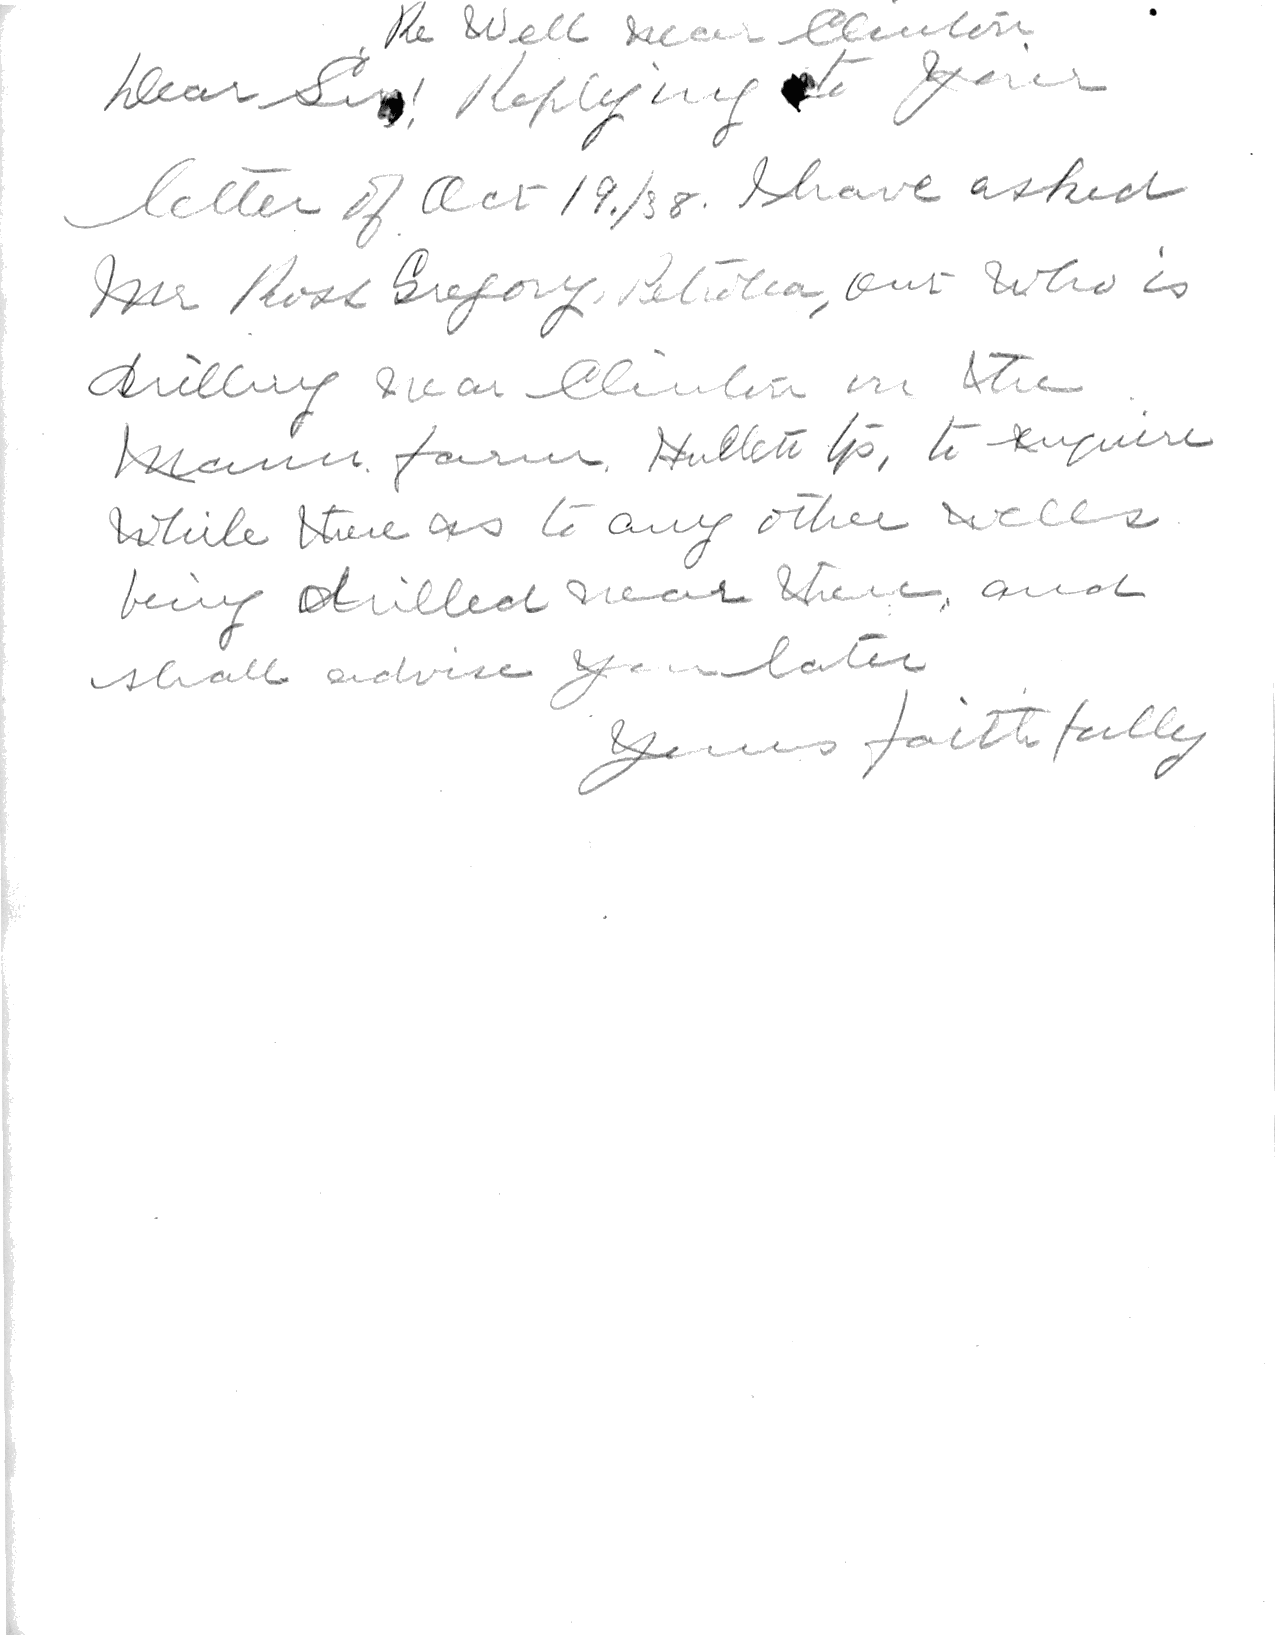 Re Well near Clinton
Dear Sir! Replying to your
letter of Oct 19./38. I have asked
Mr Ross Gregory, Petrolea, Ont who is
drilling near Clinton on the
Mann farm, Hullett Tp, to enquire
while there as to any other wells
being drilled near there, and
shall advise you later
Yours faithfully